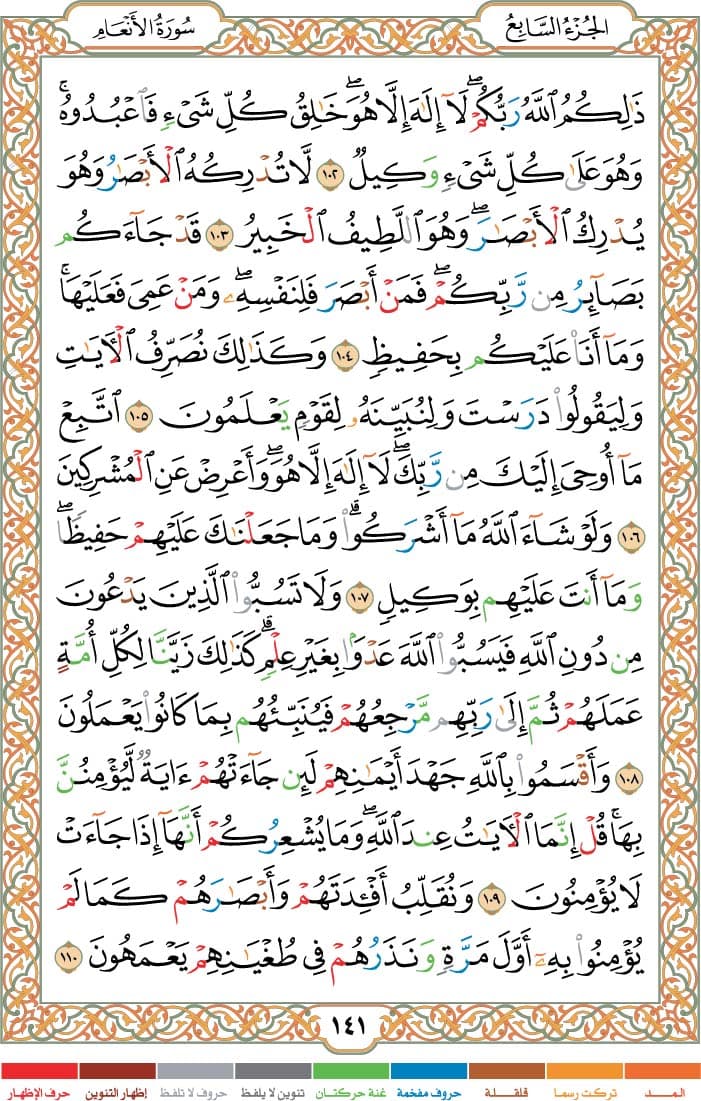 الجُزْءُ السَّابِعُ
سُورَةُ الأَنْعَامِ
ذَٰلِكُمُ ٱللَّهُ رَبُّكُمْۖ لَآ إِلَٰهَ إِلَّا هُوَۖ خَٰلِقُ كُلِّ شَىْءٍ فَٱعْبُدُوهُۚ
وَهُوَ عَلَىٰ كُلِّ شَىْءٍ وَكِيلٌ ١٠٢ لَّا تُدْرِكُهُ ٱلْأَبْصَٰرُ وَهُوَ
يُدْرِكُ ٱلْأَبْصَٰرَۖ وَهُوَ ٱللَّطِيفُ ٱلْخَبِيرُ ١٠٣ قَدْ جَآءَكُم
بَصَآئِرُ مِن رَّبِّكُمْۖ فَمَنْ أَبْصَرَ فَلِنَفْسِهِۦۖ وَمَنْ عَمِىَ فَعَلَيْهَاۚ
وَمَآ أَنَا۠ عَلَيْكُم بِحَفِيظٍ ١٠٤ وَكَذَٰلِكَ نُصَرِّفُ ٱلْءَايَٰتِ
وَلِيَقُولُوا۟ دَرَسْتَ وَلِنُبَيِّنَهُۥ لِقَوْمٍ يَعْلَمُونَ ١٠٥ ٱتَّبِعْ
مَآ أُوحِىَ إِلَيْكَ مِن رَّبِّكَۖ لَآ إِلَٰهَ إِلَّا هُوَۖ وَأَعْرِضْ عَنِ ٱلْمُشْرِكِينَ
١٠٦ وَلَوْ شَآءَ ٱللَّهُ مَآ أَشْرَكُوا۟ۗ وَمَا جَعَلْنَٰكَ عَلَيْهِمْ حَفِيظًاۖ
وَمَآ أَنتَ عَلَيْهِم بِوَكِيلٍ ١٠٧ وَلَا تَسُبُّوا۟ ٱلَّذِينَ يَدْعُونَ
مِن دُونِ ٱللَّهِ فَيَسُبُّوا۟ ٱللَّهَ عَدْوًۢا بِغَيْرِ عِلْمٍۗ كَذَٰلِكَ زَيَّنَّا لِكُلِّ أُمَّةٍ
عَمَلَهُمْ ثُمَّ إِلَىٰ رَبِّهِم مَّرْجِعُهُمْ فَيُنَبِّئُهُم بِمَا كَانُوا۟ يَعْمَلُونَ
١٠٨ وَأَقْسَمُوا۟ بِٱللَّهِ جَهْدَ أَيْمَٰنِهِمْ لَئِن جَآءَتْهُمْ ءَايَةٌ لَّيُؤْمِنُنَّ
بِهَاۚ قُلْ إِنَّمَا ٱلْءَايَٰتُ عِندَ ٱللَّهِۖ وَمَا يُشْعِرُكُمْ أَنَّهَآ إِذَا جَآءَتْ
لَا يُؤْمِنُونَ ١٠٩ وَنُقَلِّبُ أَفْـِٔدَتَهُمْ وَأَبْصَٰرَهُمْ كَمَا لَمْ
يُؤْمِنُوا۟ بِهِۦٓ أَوَّلَ مَرَّةٍ وَنَذَرُهُمْ فِى طُغْيَٰنِهِمْ يَعْمَهُونَ ١١٠
١٤١
المـــد تركت رسما قلقـلة حروف مفخمة غنة حركتان تنوين لا يلفظ حروف لا تلفظ إظهار التنوين حرف الإظهار